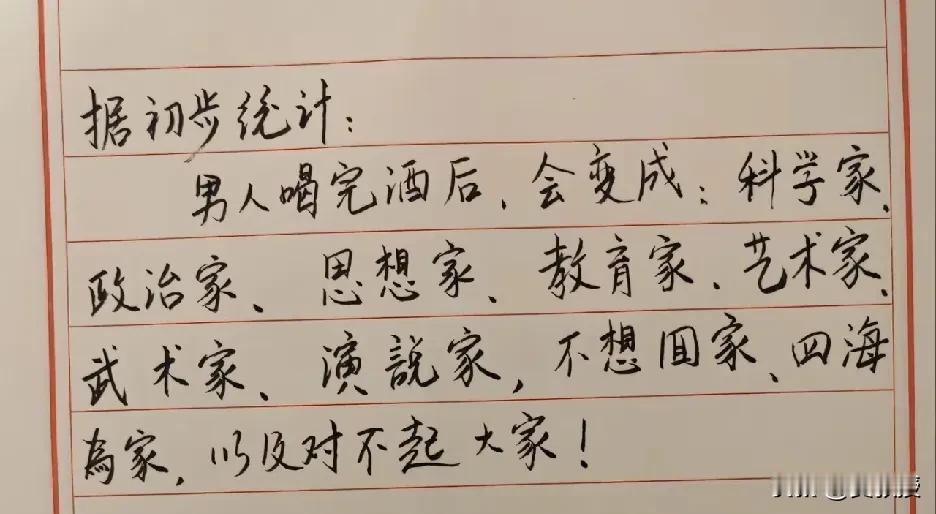 据初步统计：
男人喝完酒后、会变成：科学家、
政治家、思想家、教育家、艺术家、
武术家、演說家，不想回家、四海
為家，以及对不起大家！